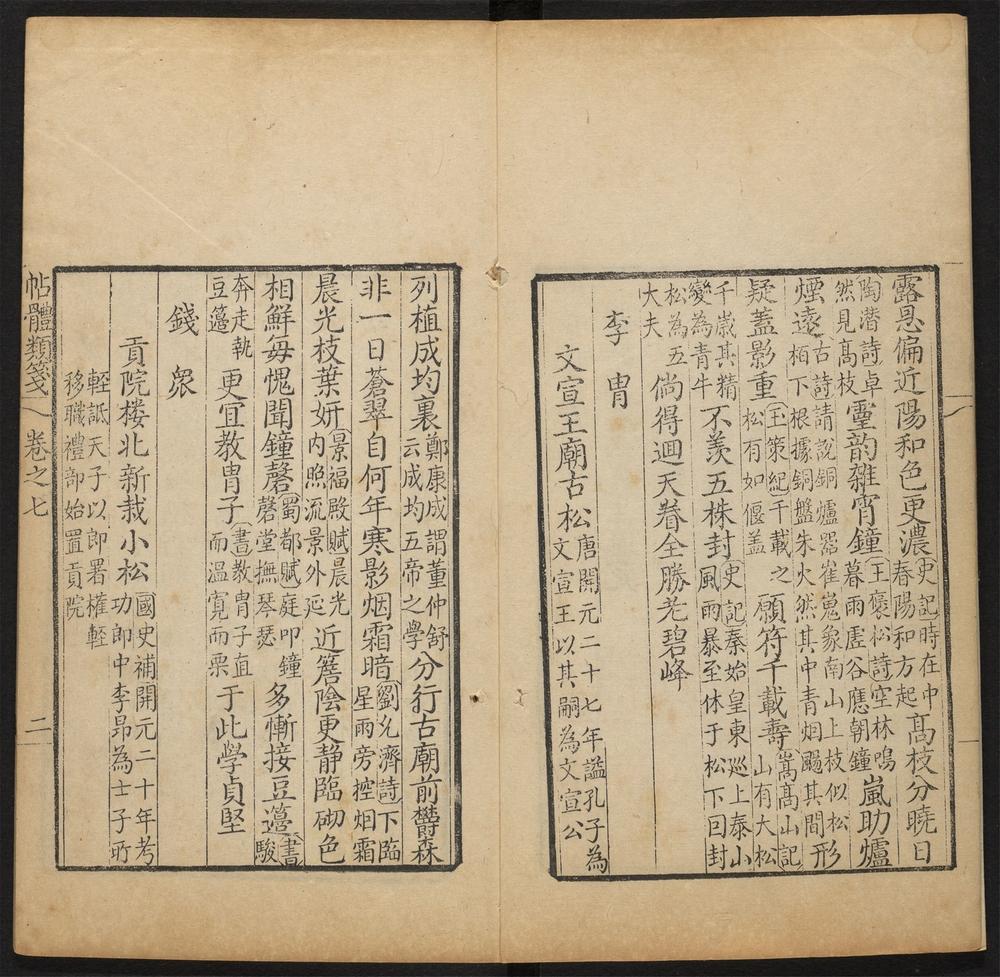 露恩偏近陽和色更濃史記時在中春陽和方起高枝分曉日
陶潛詩卓然見高枝靈韵雜宵鐘王褒松詩空林鳴暮雨虛谷應朝鐘嵐助爐
煙遠古詩請說銅爐器崔嵬象南山上枝似松栢下根據銅盤朱火然其中青烟颺其間形
疑蓋影重玉策紀千載之松有如偃盖願符千載壽嵩髙山記山有大松
千嵗其精變為青牛不羡五株封史記秦始皇東廵上泰山風雨暴至休于松下因封
松為五大夫倘得迴天眷全勝老碧峰
李胄
文宣王廟古松唐開元二十七年謚孔子為文宣王以其嗣為文宣公
列植成均裏鄭康成謂董仲舒云成均五帝之學分行古廟前欝森
非一日蒼翠自何年寒影烟霜暗劉允濟詩下臨星雨旁控烟霜
晨光枝葉妍景福殿賦晨光内照流景外延近簷陰更静臨砌色
相鮮每愧聞鐘磬蜀都賦庭叩鐘磬堂撫琴瑟多慚接豆籩書駿
奔走執豆籩更宜教胄子書教胄子直而温寬而栗于此學貞堅
錢衆
貢院楼北新栽小松國史補開元二十年考功郎中李昂為士子所
輕詆天子以郎署權輕移職禮部始置貢院
帖體類箋 卷之七 二